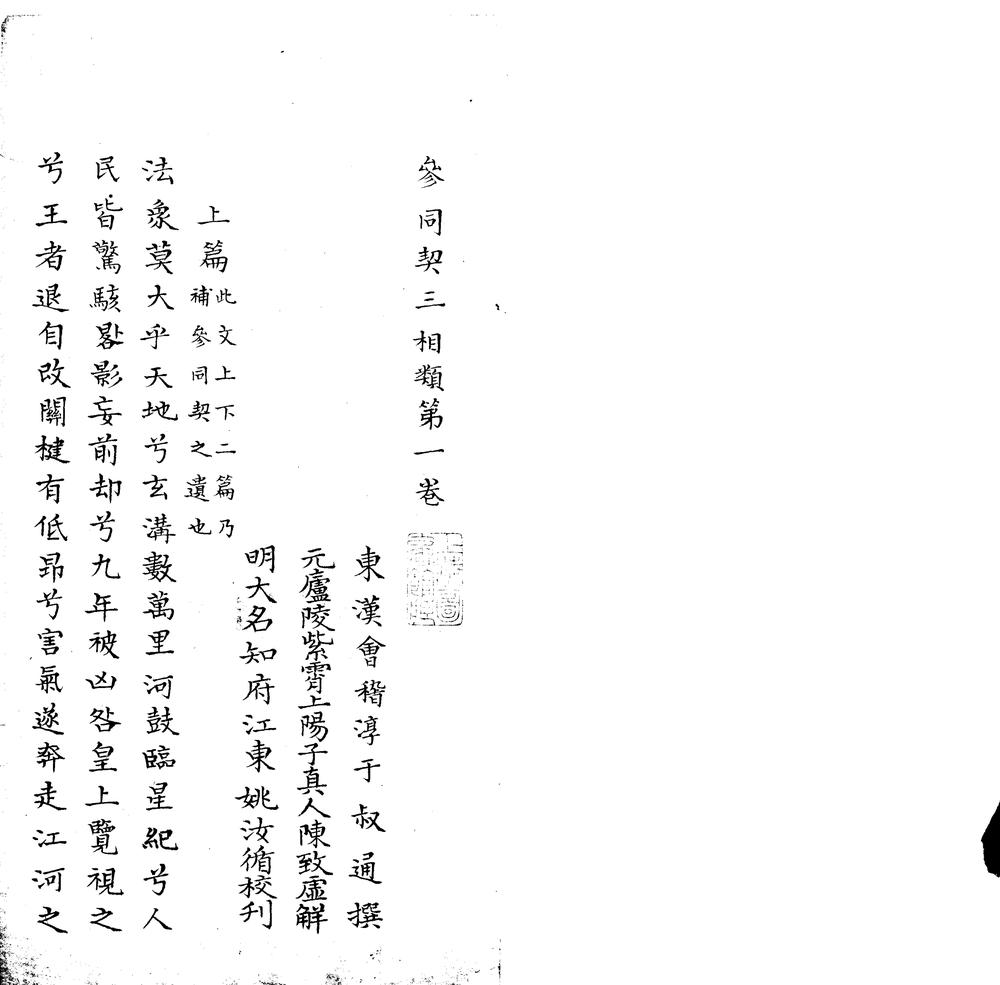 參同契三相類第一卷
東漢會稽淳于叔通撰
元廬陵紫霄上陽子真人陳致虛解
明大名知府江東姚汝循校刋
上篇此文上下二篇乃補參同契之遺也
法象莫大乎天地兮玄溝數萬里河鼓臨星紀兮人
民皆驚駭晷影妄前却兮九年被凶咎皇上覽視之
兮王者退自改關楗有低昂兮害氣遂奔走江河之